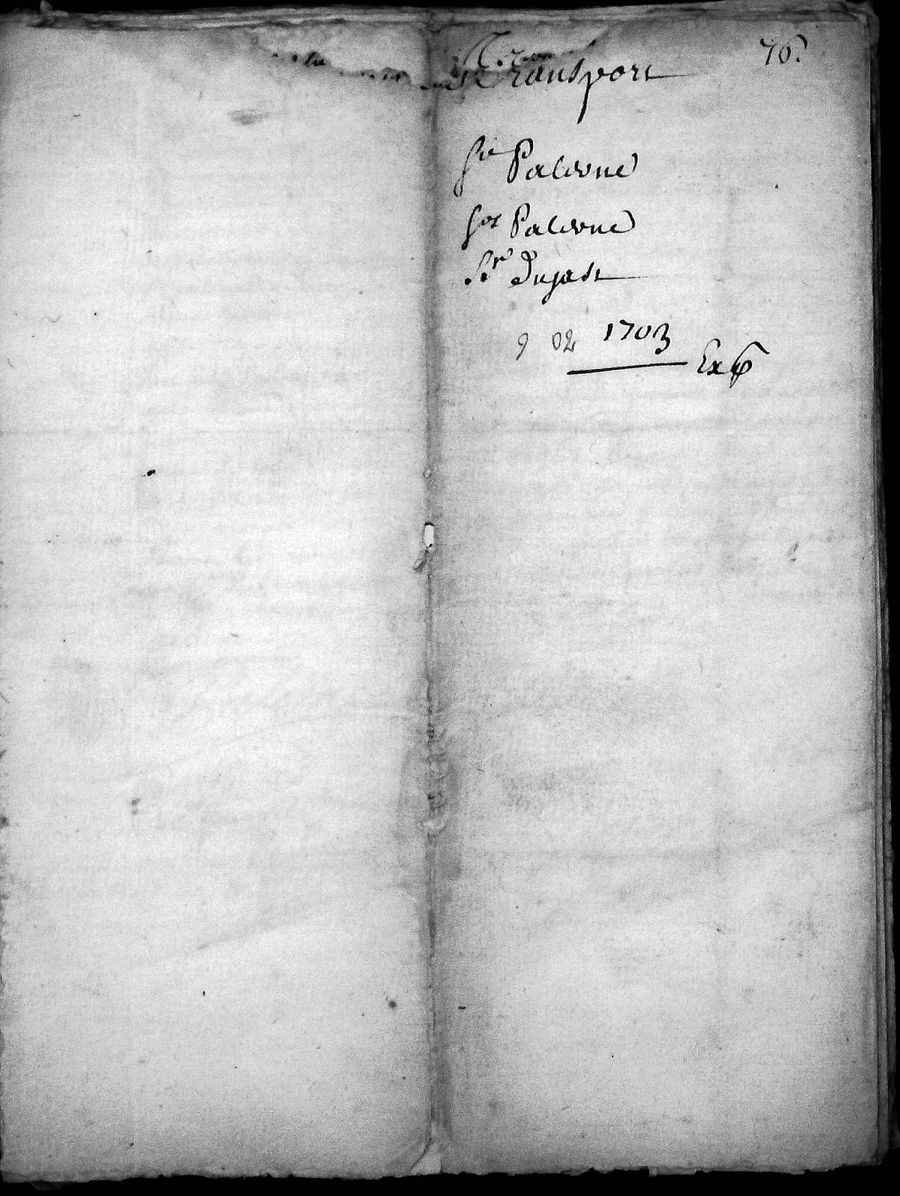 76.
Transport
Sr Palerne
Sr Palerne
Sr Dugast
9 02 1703
Exp